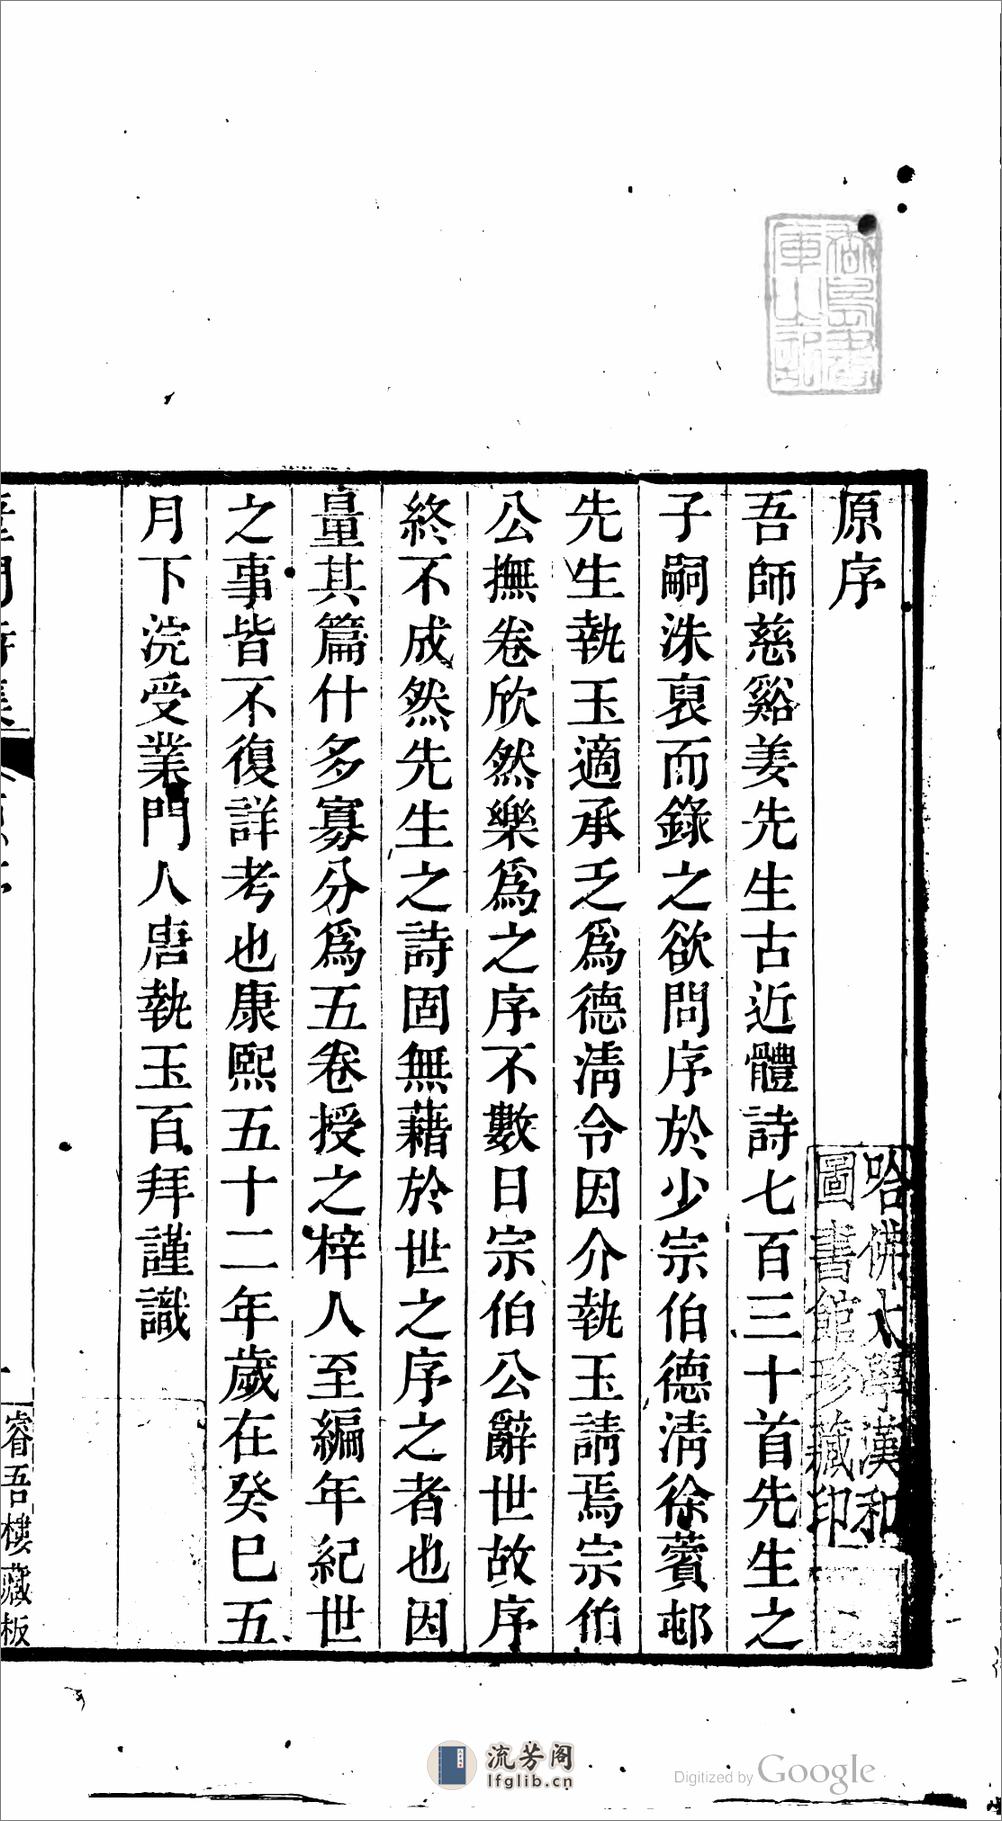 原序
吾師慈谿姜先生古近體詩七百三十首先生之
子嗣洙裒而錄之欲問序於少宗伯德淸徐蘋邨
先生執玉適承乏爲德淸令因介執玉請焉宗伯
公撫卷欣然樂爲之序不數日宗伯公辭世故序
終不成然先生之詩固無藉於世之序之者也因
量其篇什多寡分爲五卷授之梓人至編年紀世
之事皆不復詳考也康熙五十二年歲在癸巳五
月下浣受業門人唐執玉百拜謹識
睿吾樓藏板
哈佛大學漢和
圖書館珍藏印
流芳阁
lfglib.cn
Digitized by Google